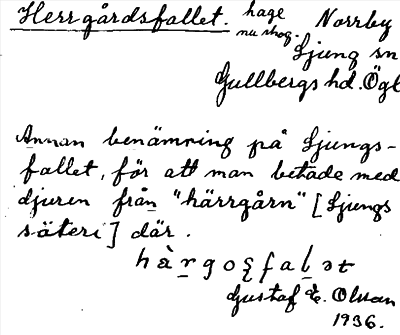 Herrgårdsfallet. hage Norrby
nu skog. Ljung sn
Gullbergs hd. Ögl
Annan benämning på Ljungs-
fallet, för att man betade med
djuren från "härrgårn" [Ljungs
säteri] där.
Gustaf Olsson
1936.